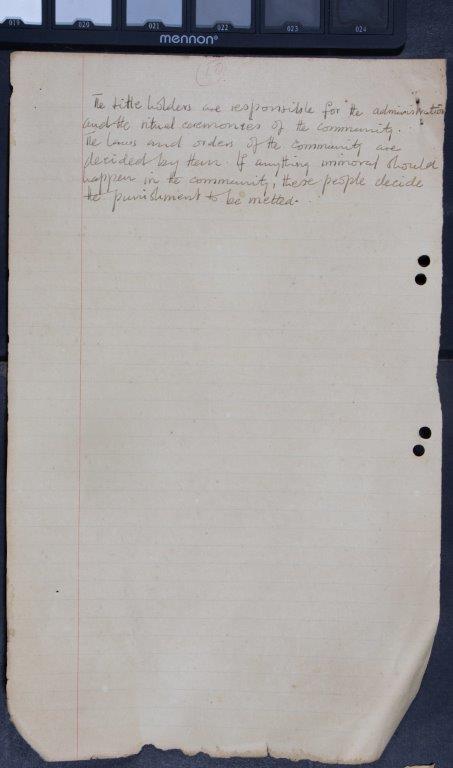 019
020
021
022
023
024
mennon®
The title holders are responsible for the administration
and the ritual ceremonies of the community.
The laws and orders of the community are
decided by them. If anything immoral should
happen in the community, these people decide
the punishment to be metted.